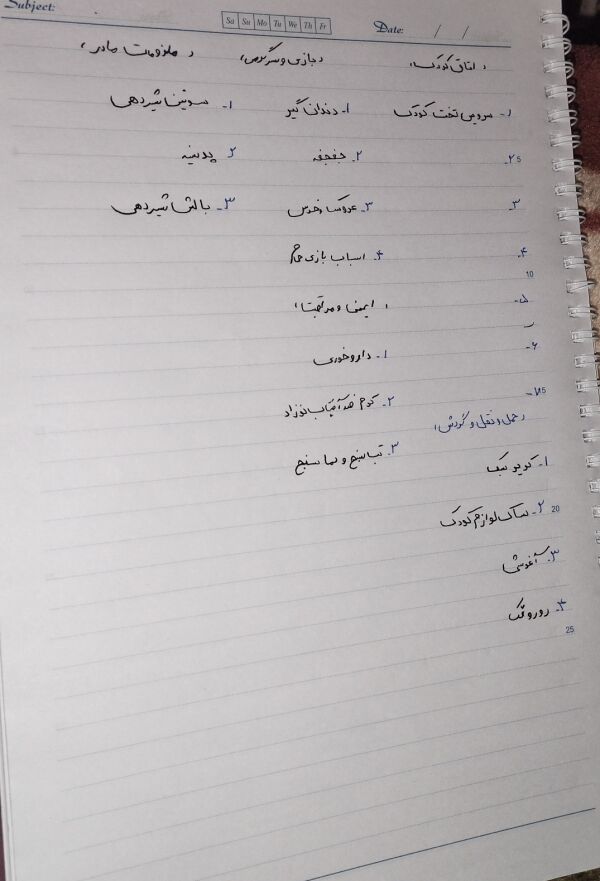 Subject:
Sa Su Mo Tu We Th Fr
Date: / /
، اتاق کودک،
۱- سرویس تخت کودک
۲-
۳-
۴-
۵-
۶-
۷-
، حمل و نقل و گردش،
۱- کریر بیک
۲- ساک لوازم کودک
۳- آغوشی
۴- روروئک
، بازی و سرگرمی،
۱- دندان گیر
۲- جغجغه
۳- عروسک و خرس
۴- اسباب بازی حمام
، ایمنی و مراقبت،
۱- داروخوری
۲- کرم ضد آفتاب نوزاد
۳- تب سنج و دما سنج
، ملزومات مادر،
۱- سوتین شیردهی
۲- پد سینه
۳- بالش شیردهی
5
10
15
20
25